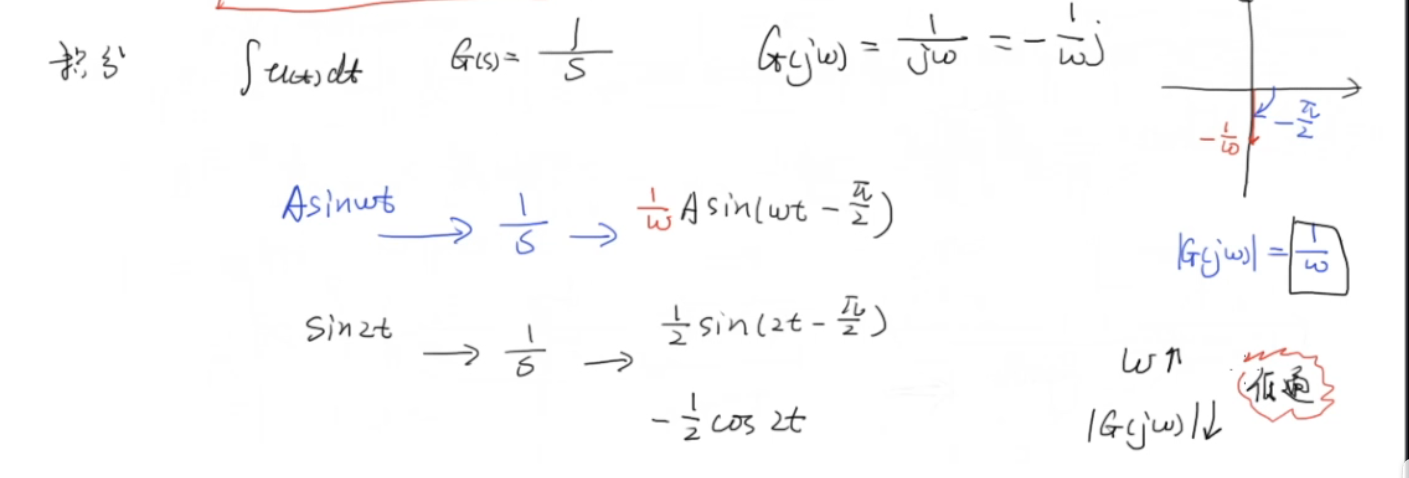 积分 ∫u(t)dt G(s)= 1/s G(jω) = 1/jω = -1/ω j
-1/ω -π/2
Asinωt → 1/s → 1/ω A sin(ωt - π/2)
|G(jω)| = 1/ω
sin2t → 1/s → 1/2 sin(2t - π/2)
-1/2 cos 2t
ω↑
|G(jω)|↓ 低通